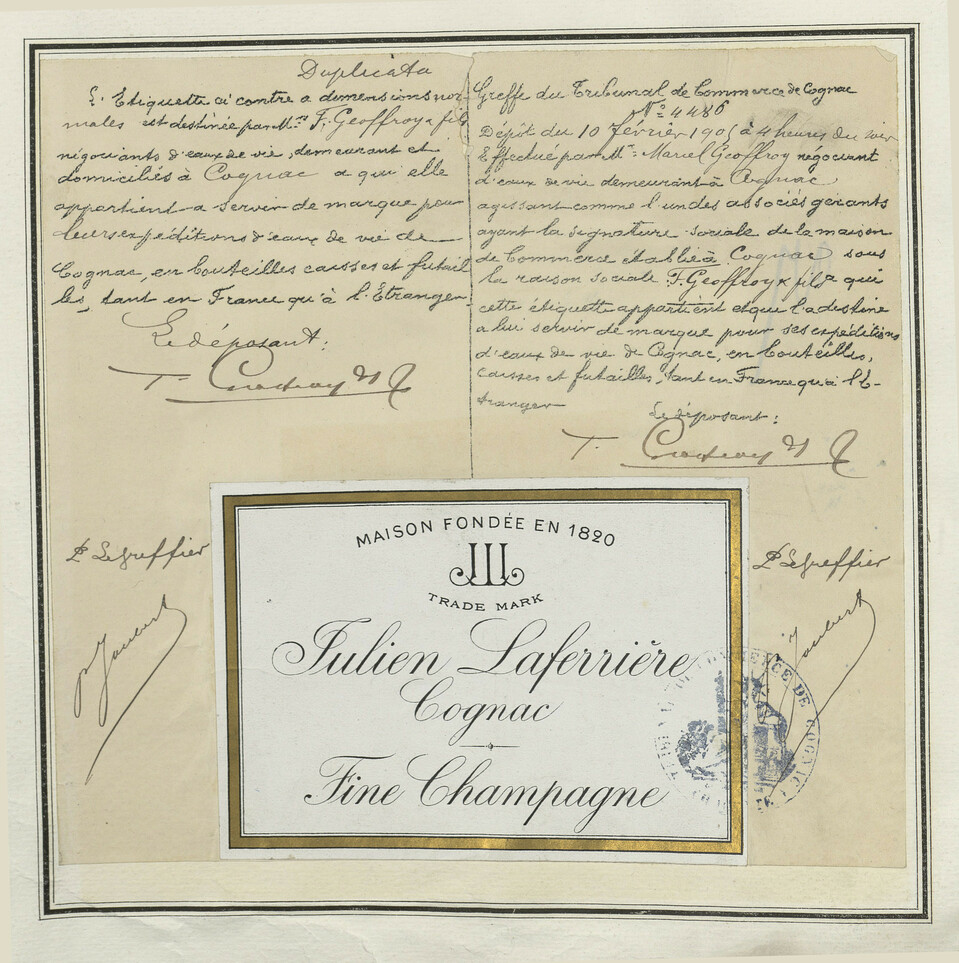 Duplicata
L' Etiquette ci contre a dimensions nor-
males est destinée par M.rs F. Geoffroy & fils
négociants d'eaux de vie, demeurant et
domiciliés à Cognac a qui elle
appartient a servir de marque pour
leurs expéditions d'eaux de vie de
Cognac, en bouteilles caisses et futail
les, tant en France qu'à l'Étranger
Le déposant:
F. Geoffroy & f
P.r Le Greffier
Joubert
Greffe du Tribunal de Commerce de Cognac
N.o 4486
Dépôt du 10 février 1905 à 4 heures du soir
Effectué par M.r Marcel Geoffroy négociant
d'eaux de vie demeurant à Cognac
agissant comme l'un des associés gérants
ayant la signature sociale de la maison
de Commerce établie à Cognac sous
la raison sociale F. Geoffroy & fils a qui
cette étiquette appartient et qui la destine
a lui servir de marque pour ses expéditions
d'eaux de vie de Cognac, en bouteilles,
caisses et futailles, tant en France qu'à l'E-
tranger
Le déposant:
F. Geoffroy & f
P.r Le Greffier
Joubert
MAISON FONDÉE EN 1820
TRADE MARK
Julien Laferrière
Cognac
Fine Champagne
COMMERCE DE COGNAC